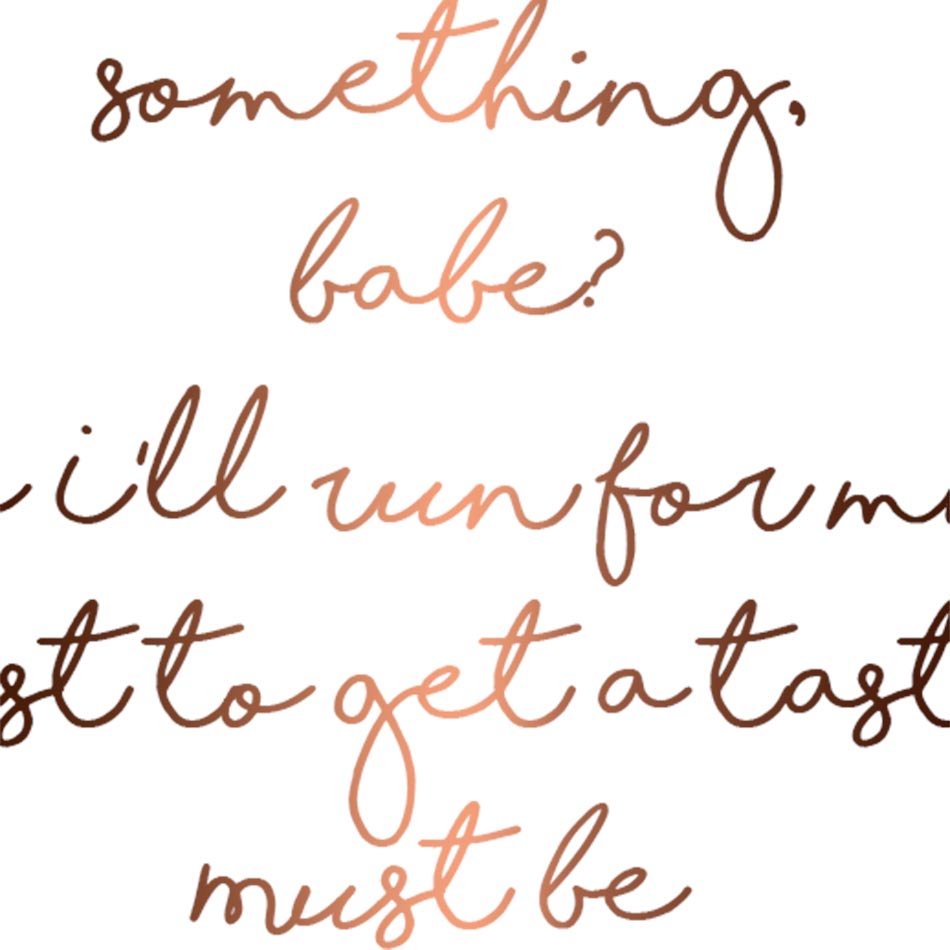 something,
babe?
i'll run for m
st to get a tast
must be